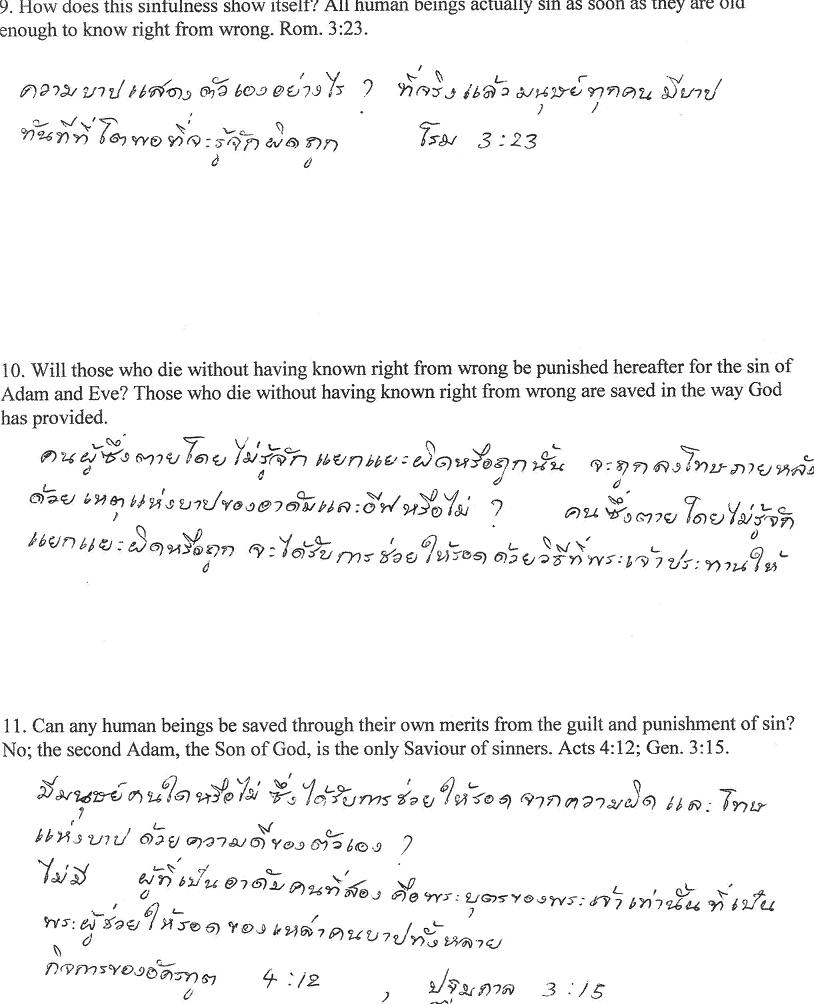 9. How does this sinfulness show itself? All human beings actually sin as soon as they are old
enough to know right from wrong. Rom. 3:23.
ความบาปแสดงตัวเองอย่างไร ? ที่จริงแล้วมนุษย์ทุกคนมีบาป
ทันทีที่โตพอที่จะรู้จักผิดถูก โรม 3:23
10. Will those who die without having known right from wrong be punished hereafter for the sin of
Adam and Eve? Those who die without having known right from wrong are saved in the way God
has provided.
คนผู้ซึ่งตายโดยไม่รู้จักแยกแยะผิดหรือถูกนั้น จะถูกลงโทษภายหลัง
ด้วยเหตุแห่งบาปของอาดัมและอีฟหรือไม่ ? คนซึ่งตายโดยไม่รู้จัก
แยกแยะผิดหรือถูก จะได้รับการช่วยให้รอดด้วยวิธีที่พระเจ้าประทานให้
11. Can any human beings be saved through their own merits from the guilt and punishment of sin?
No; the second Adam, the Son of God, is the only Saviour of sinners. Acts 4:12; Gen. 3:15.
มีมนุษย์คนใดหรือไม่ ซึ่งได้รับการช่วยให้รอดจากความผิดและโทษ
แห่งบาปด้วยความดีของตัวเอง ?
ไม่มี ผู้ที่เป็นอาดัมคนที่สอง คือพระบุตรของพระเจ้าเท่านั้นที่เป็น
พระผู้ช่วยให้รอดของเหล่าคนบาปทั้งหลาย
กิจการของอัครทูต 4:12 , ปฐมกาล 3:15